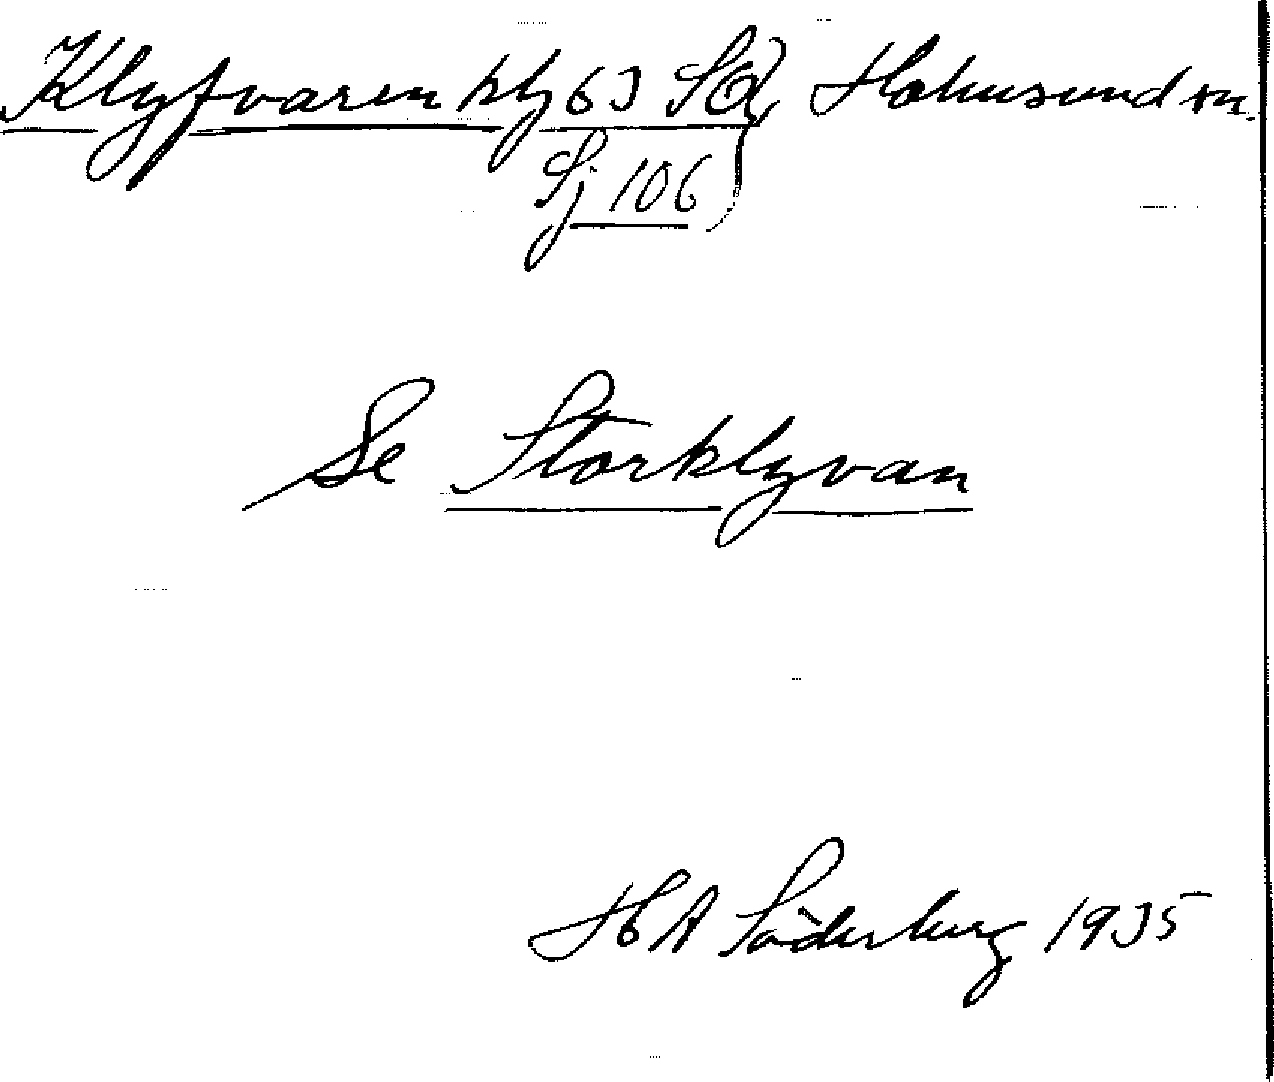 Klyfvaren kly 63 SQ) Holmsund sn.
Sj 106)
Se Storklyvan
H A Söderberg 1935